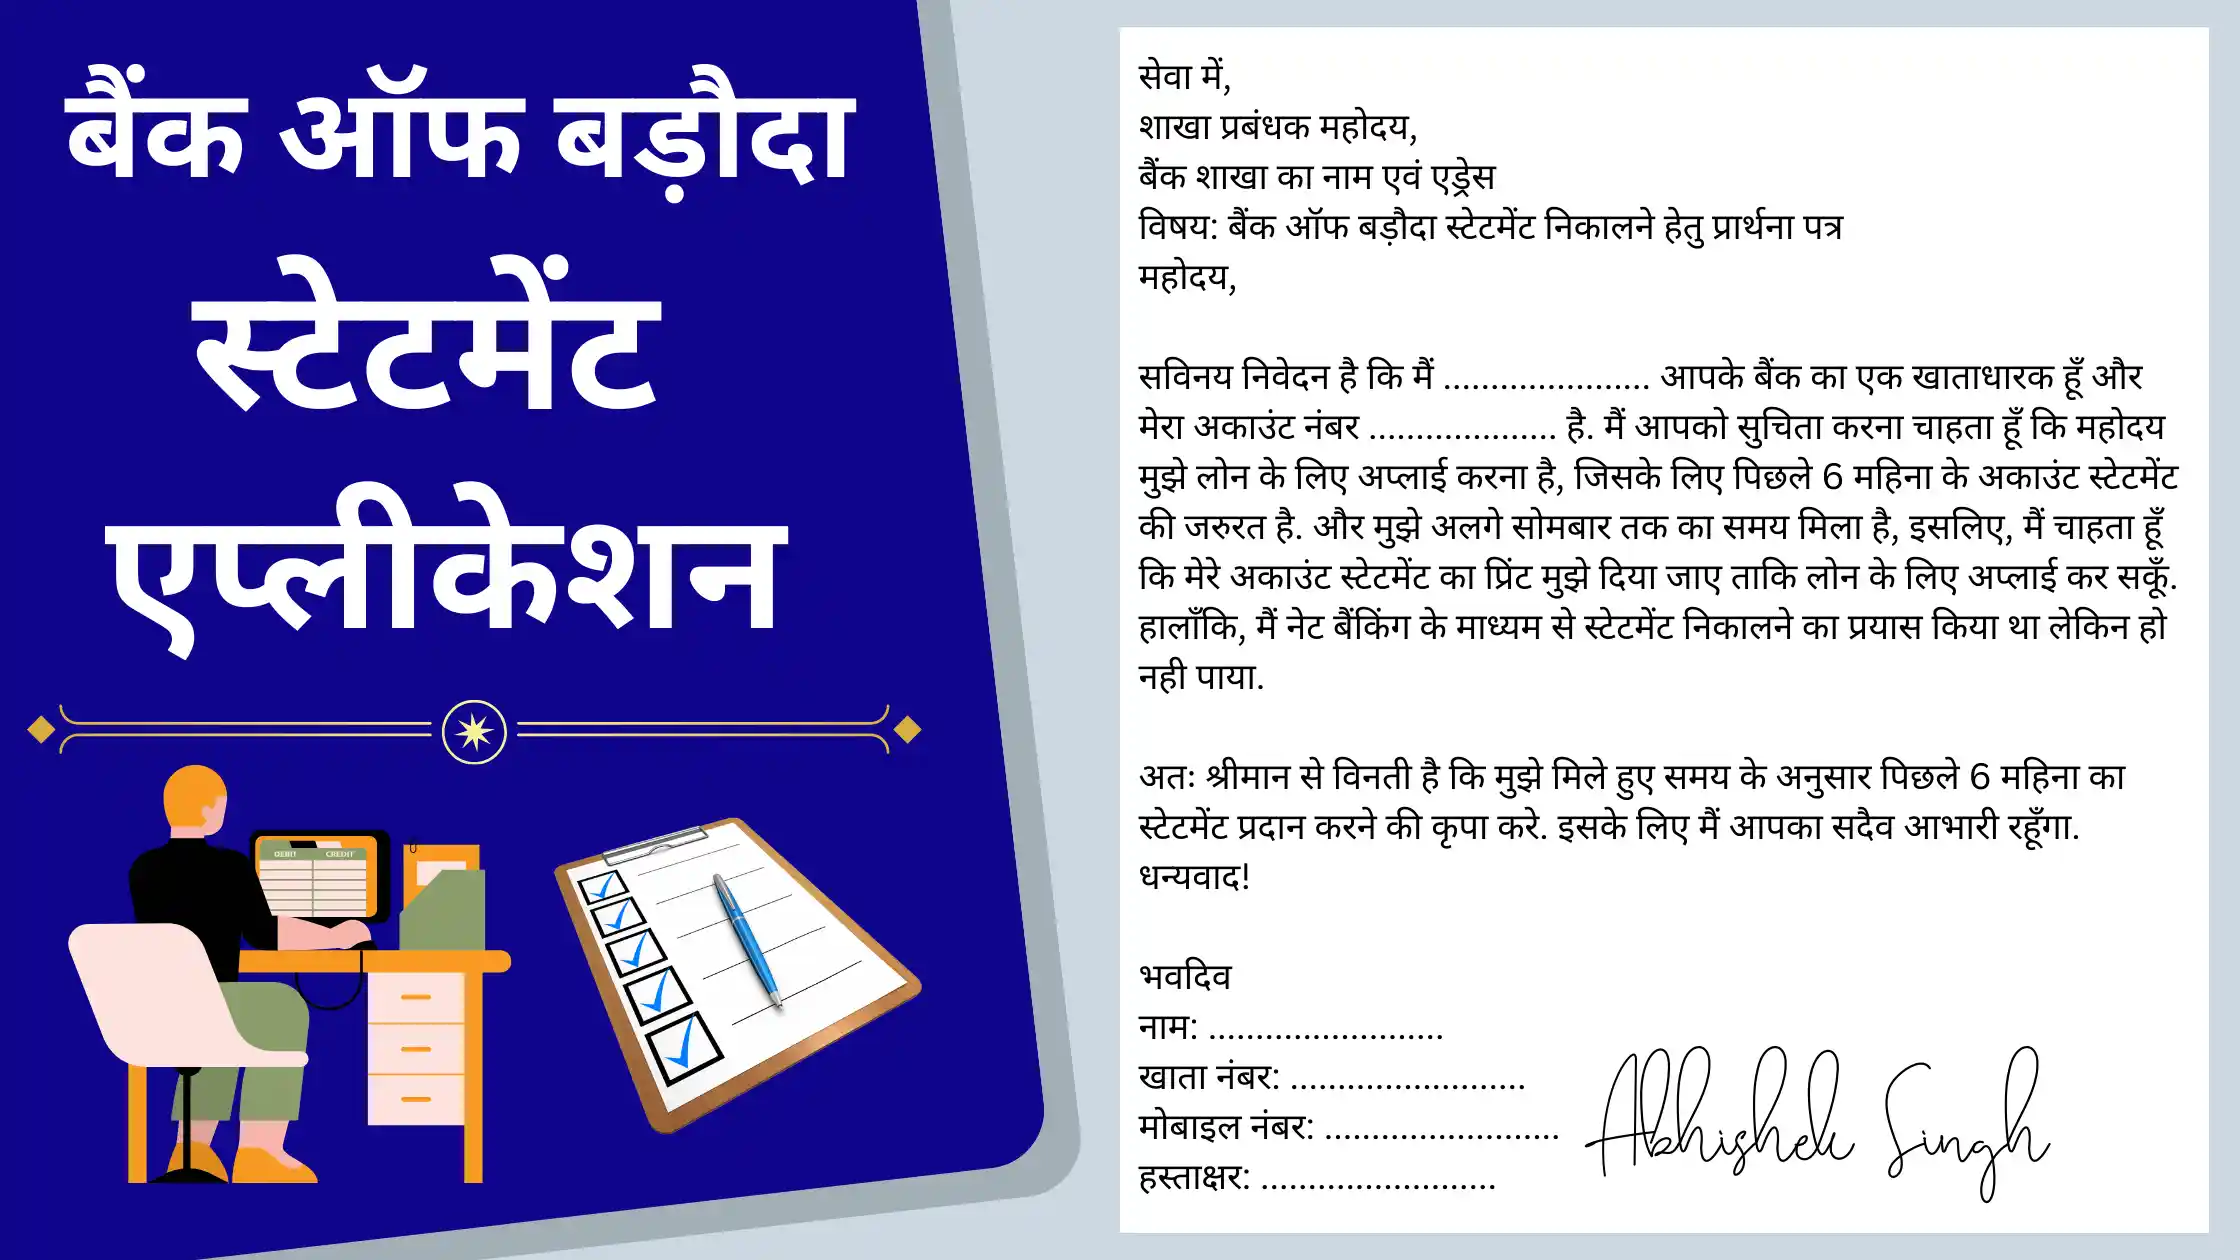 बैंक ऑफ बड़ौदा
स्टेटमेंट
एप्लीकेशन
DEBIT CREDIT
सेवा में,
शाखा प्रबंधक महोदय,
बैंक शाखा का नाम एवं एड्रेस
विषय: बैंक ऑफ बड़ौदा स्टेटमेंट निकालने हेतु प्रार्थना पत्र
महोदय,
सविनय निवेदन है कि मैं ...................... आपके बैंक का एक खाताधारक हूँ और
मेरा अकाउंट नंबर .................... है. मैं आपको सुचिता करना चाहता हूँ कि महोदय
मुझे लोन के लिए अप्लाई करना है, जिसके लिए पिछले 6 महिना के अकाउंट स्टेटमेंट
की जरुरत है. और मुझे अलगे सोमबार तक का समय मिला है, इसलिए, मैं चाहता हूँ
कि मेरे अकाउंट स्टेटमेंट का प्रिंट मुझे दिया जाए ताकि लोन के लिए अप्लाई कर सकूँ.
हालाँकि, मैं नेट बैंकिंग के माध्यम से स्टेटमेंट निकालने का प्रयास किया था लेकिन हो
नही पाया.
अतः श्रीमान से विनती है कि मुझे मिले हुए समय के अनुसार पिछले 6 महिना का
स्टेटमेंट प्रदान करने की कृपा करे. इसके लिए मैं आपका सदैव आभारी रहूँगा.
धन्यवाद!
भवदिव
नाम: .........................
खाता नंबर: .........................
मोबाइल नंबर: .........................
हस्ताक्षर: .........................
Abhishek Singh